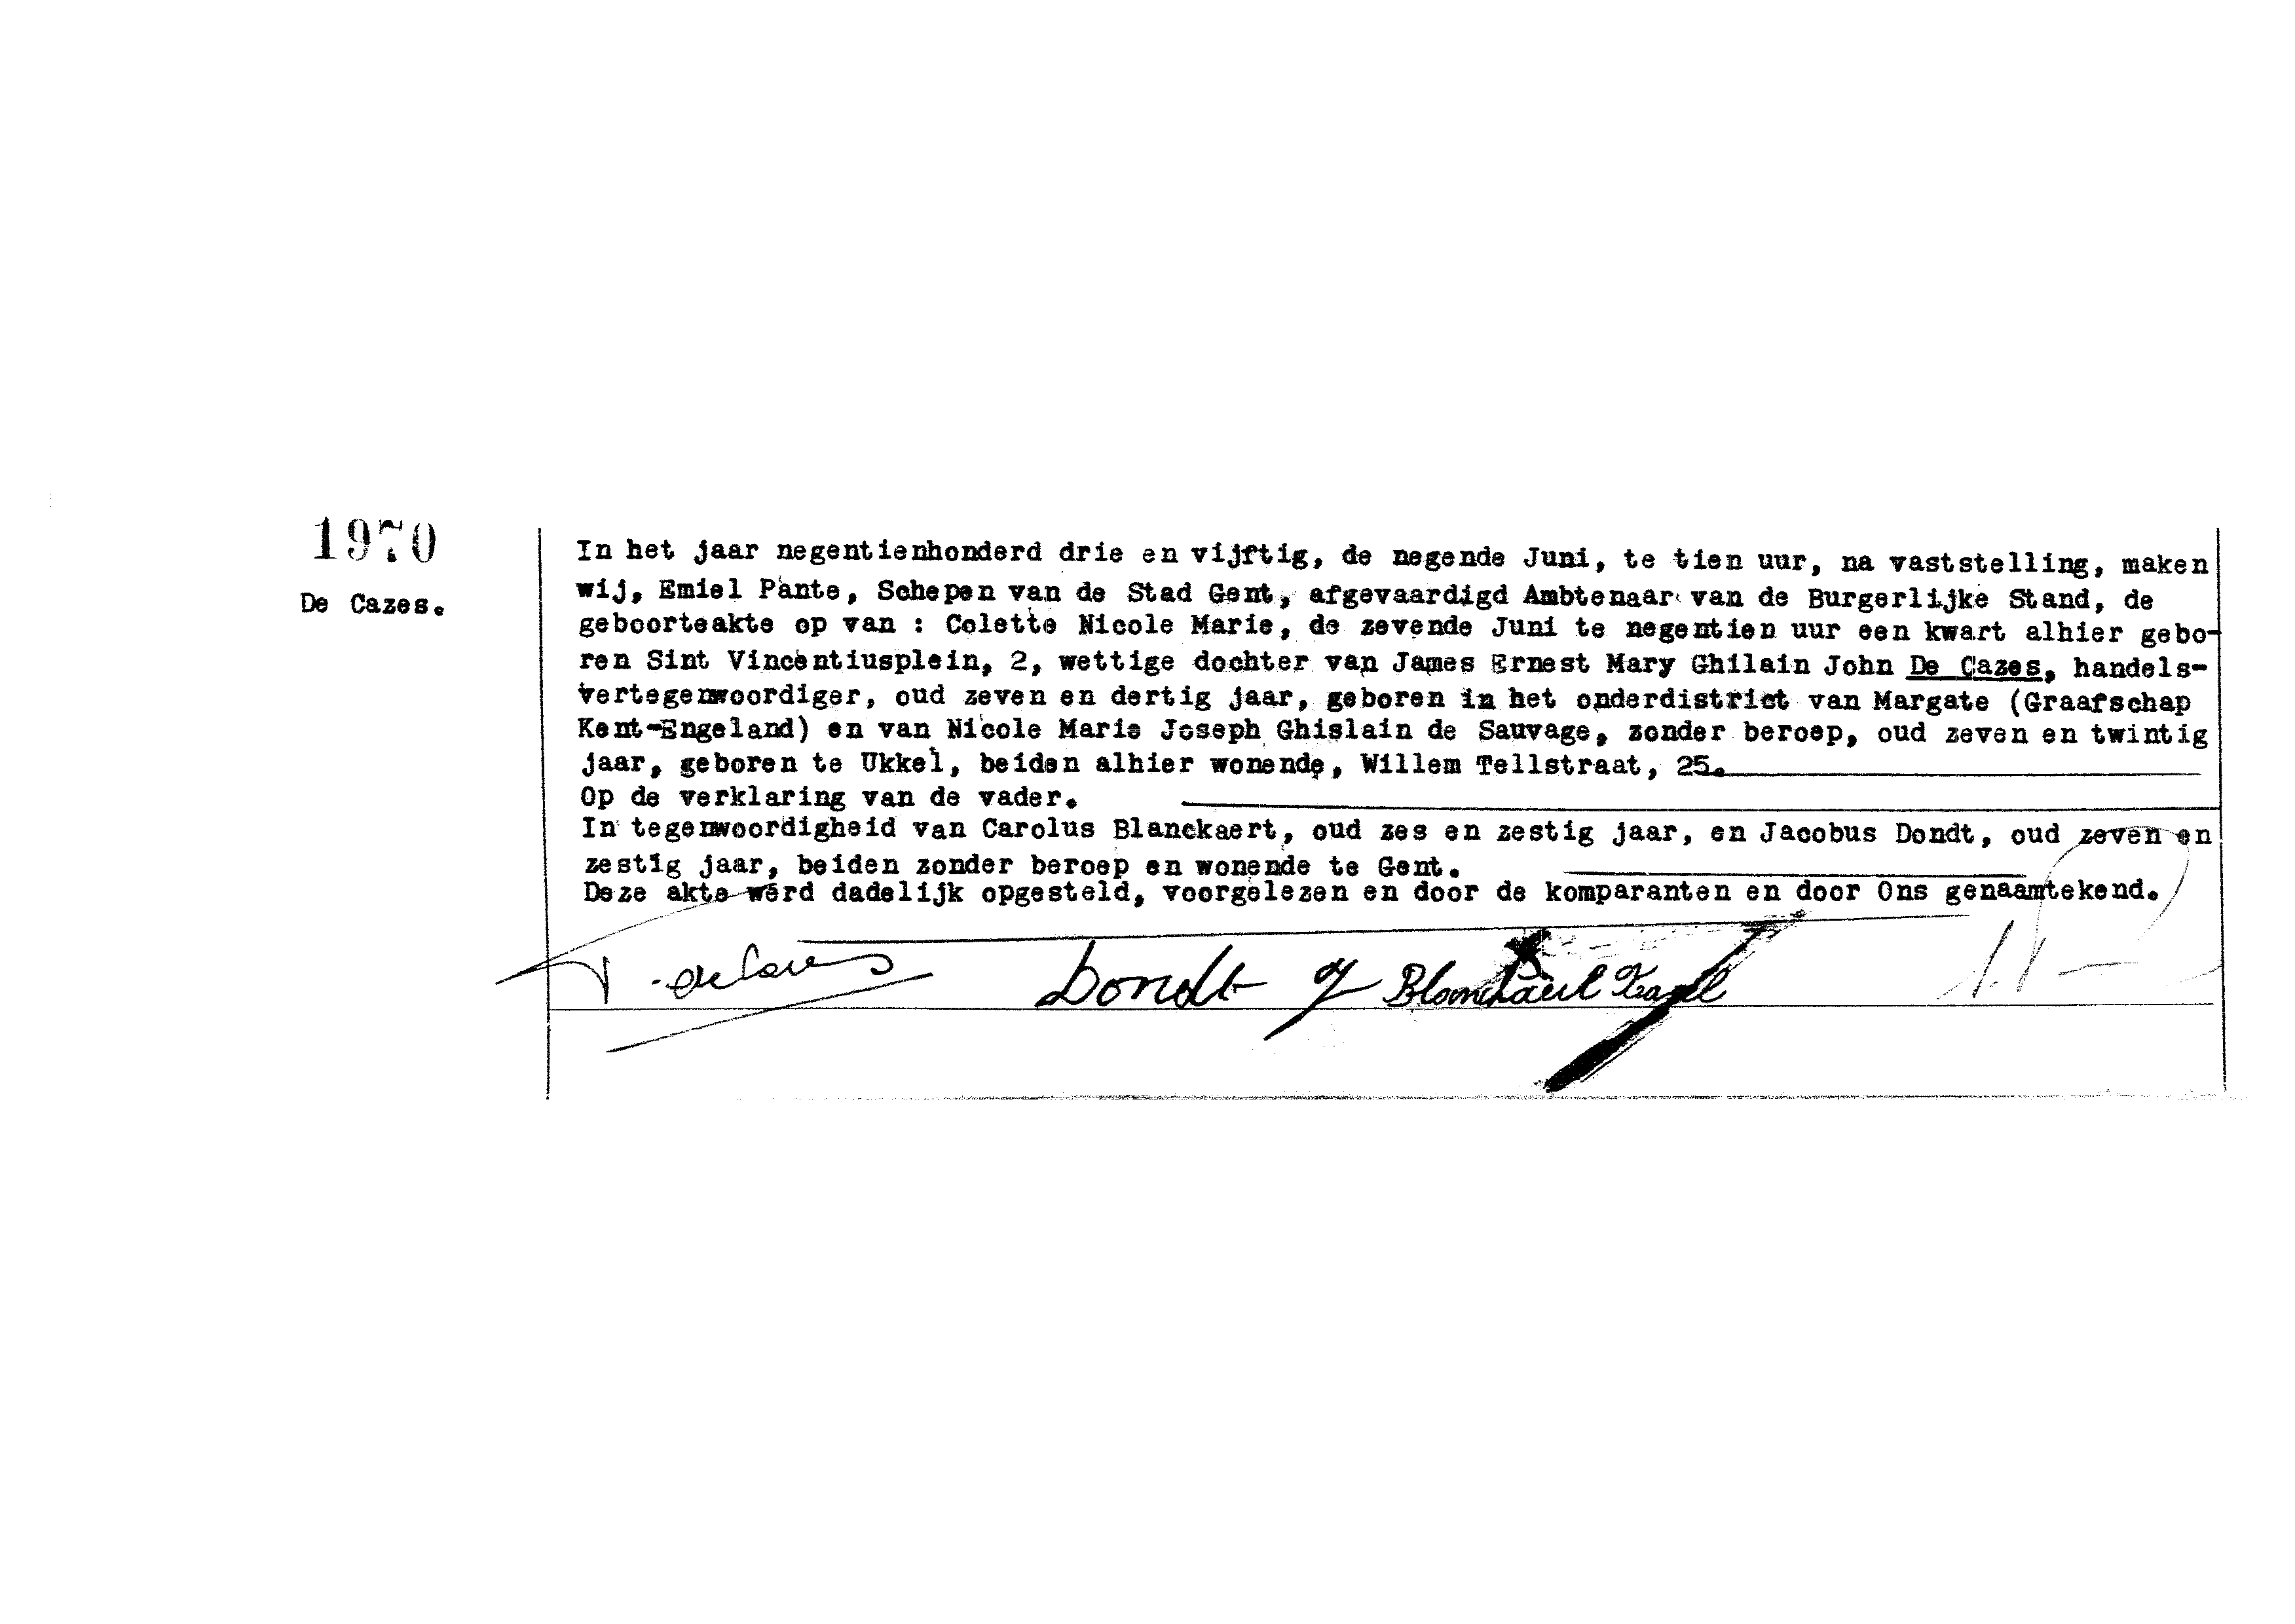 1970
De Cazes.
In het jaar negentienhonderd drie en vijftig, de negende Juni, te tien uur, na vaststelling, maken
wij, Emiel Pante, Schepen van de Stad Gent, afgevaardigd Ambtenaar van de Burgerlijke Stand, de
geboorteakte op van : Colette Nicole Marie, de zevende Juni te negentien uur een kwart alhier gebo-
ren Sint Vincentiusplein, 2, wettige dochter van James Ernest Mary Ghilain John De Cazes, handels-
vertegenwoordiger, oud zeven en dertig jaar, geboren in het onderdistrict van Margate (Graafschap
Kent-Engeland) en van Nicole Marie Joseph Ghislain de Sauvage, zonder beroep, oud zeven en twintig
jaar, geboren te Ukkel, beiden alhier wonende, Willem Tellstraat, 25.
Op de verklaring van de vader.
In tegenwoordigheid van Carolus Blanckaert, oud zes en zestig jaar, en Jacobus Dondt, oud zeven en
zestig jaar, beiden zonder beroep en wonende te Gent.
Deze akte werd dadelijk opgesteld, voorgelezen en door de komparanten en door Ons genaamtekend.
Dondt J